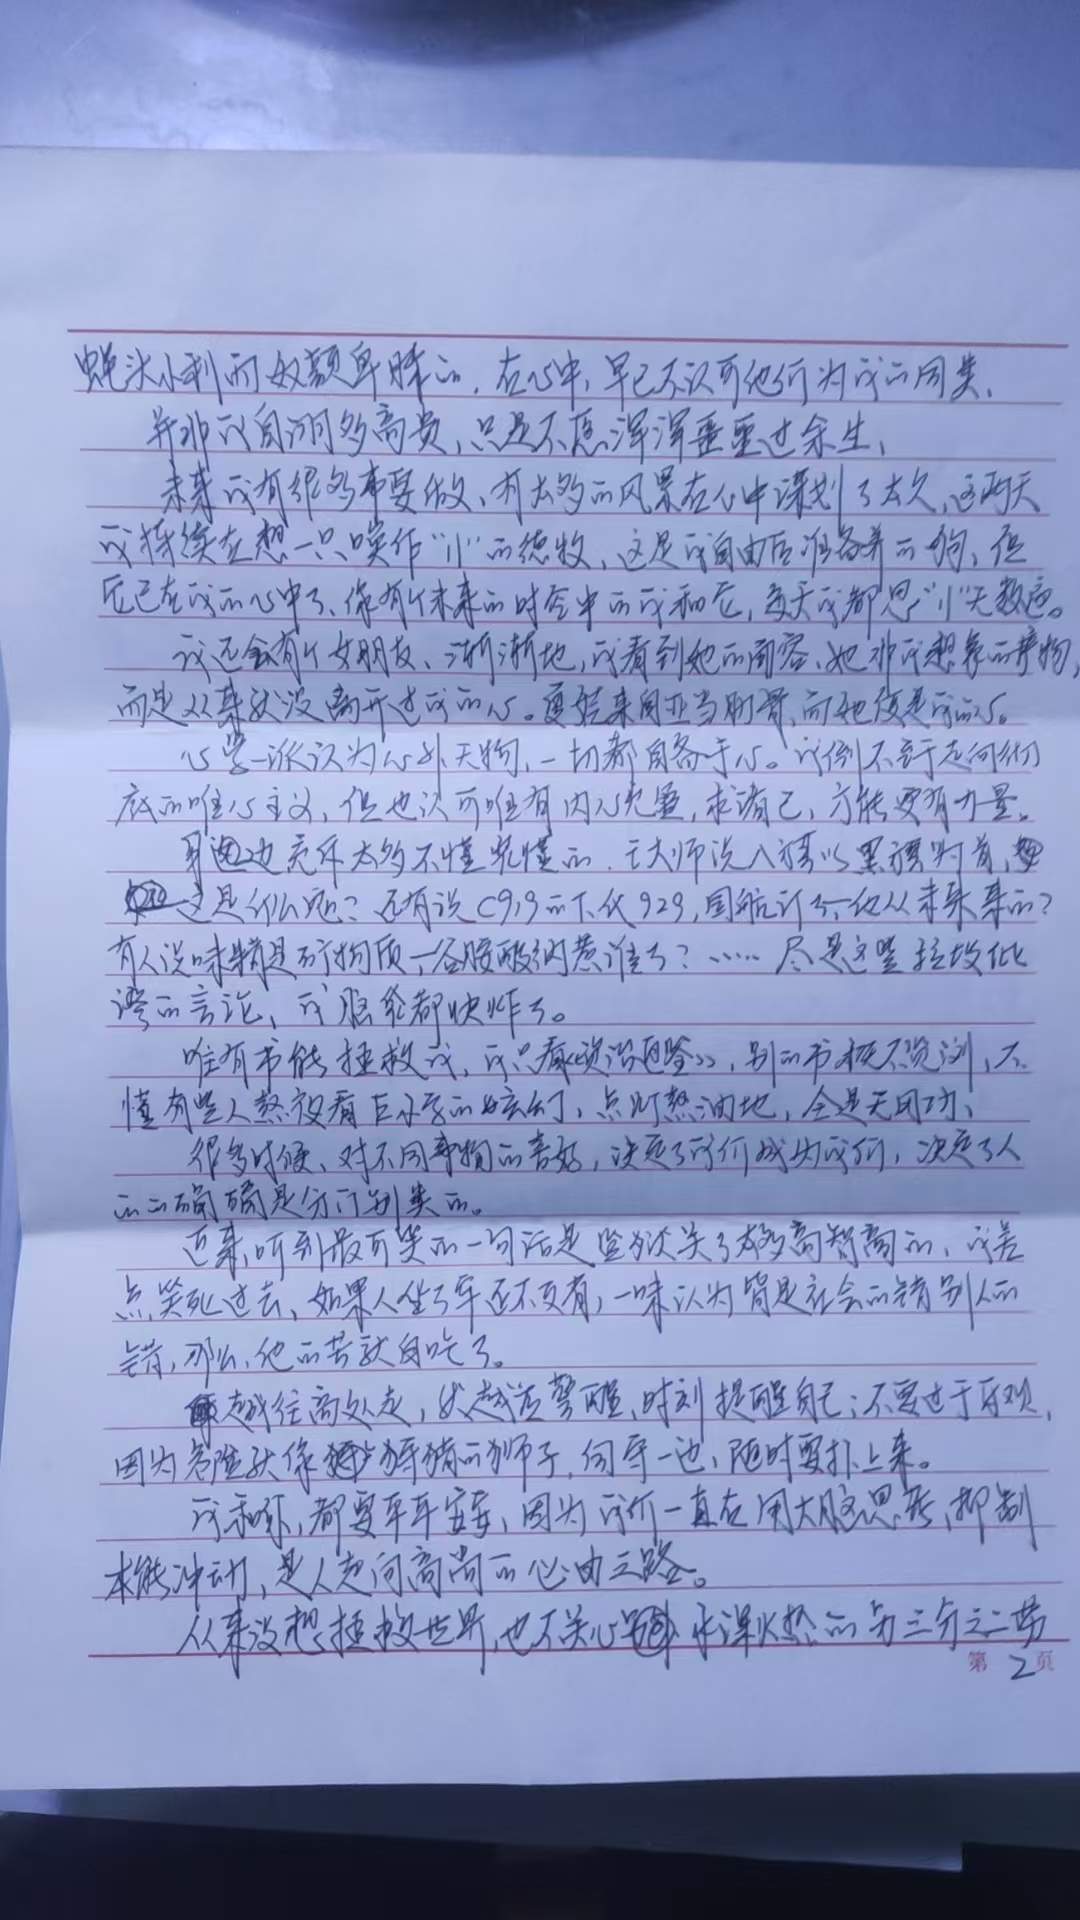 蝇头小利而奴颜卑膝的，在心中，早已不认可他们为我的同类，
并非我自诩多高贵，只是不愿浑浑噩噩过余生，
未来我有很多事要做，有太多的风景在心中谋划了太久，这两天
我持续在想一只唤作“小”的德牧，这是我自由后准备养的狗，但
它已在我的心中了，像有个未来的时空中的我和它，每天我都思“小”无数遍。
我还会有个女朋友，渐渐地，我看到她的面容，她非我想象的事物，
而是从来就没离开过我的心。夏娃来自亚当肋骨，而她便是我的心。
心学一派认为心外无物，一切都自备于心。我倒不至于走向彻
底的唯心主义，但也认可唯有内心充盈，求诸己，方能更有力量。
身边充斥太多不懂装懂的，王大师说八旗以黑旗为首，
这是什么呢？还有说C919的下代929，国航订了，他从未来来的？
有人说味精是矿物质，谷胺酸钠惹谁了？…… 尽是这些垃圾化
的言论，我脑壳都快炸了。
唯有书能拯救我，我只看《资治通鉴》，别的书概不浏览，不
懂有些人熬夜看巨小字的玄幻，点灯熬油地，全是无用功，
很多时候，对不同事物的喜好，决定了我们成为我们，决定了人
的的确确是分门别类的。
近来听到最可笑的一句话是监狱关了太多高智商的，我差
点笑死过去，如果人坐了牢还不反省，一味认为皆是社会的错别人的
错，那么，他的苦就白吃了。
越往高处走，我越没警醒，时刻提醒自己；不要过于乐观，
因为危险就像狰狞的狮子，伺守一边，随时要扑上来。
我和你，都要平平安安，因为我们一直在用大脑思考，抑制
本能冲动，是人走向高尚的必由之路。
从来没想拯救世界，也不关心水深火热的另三分之二劳
第 2 页